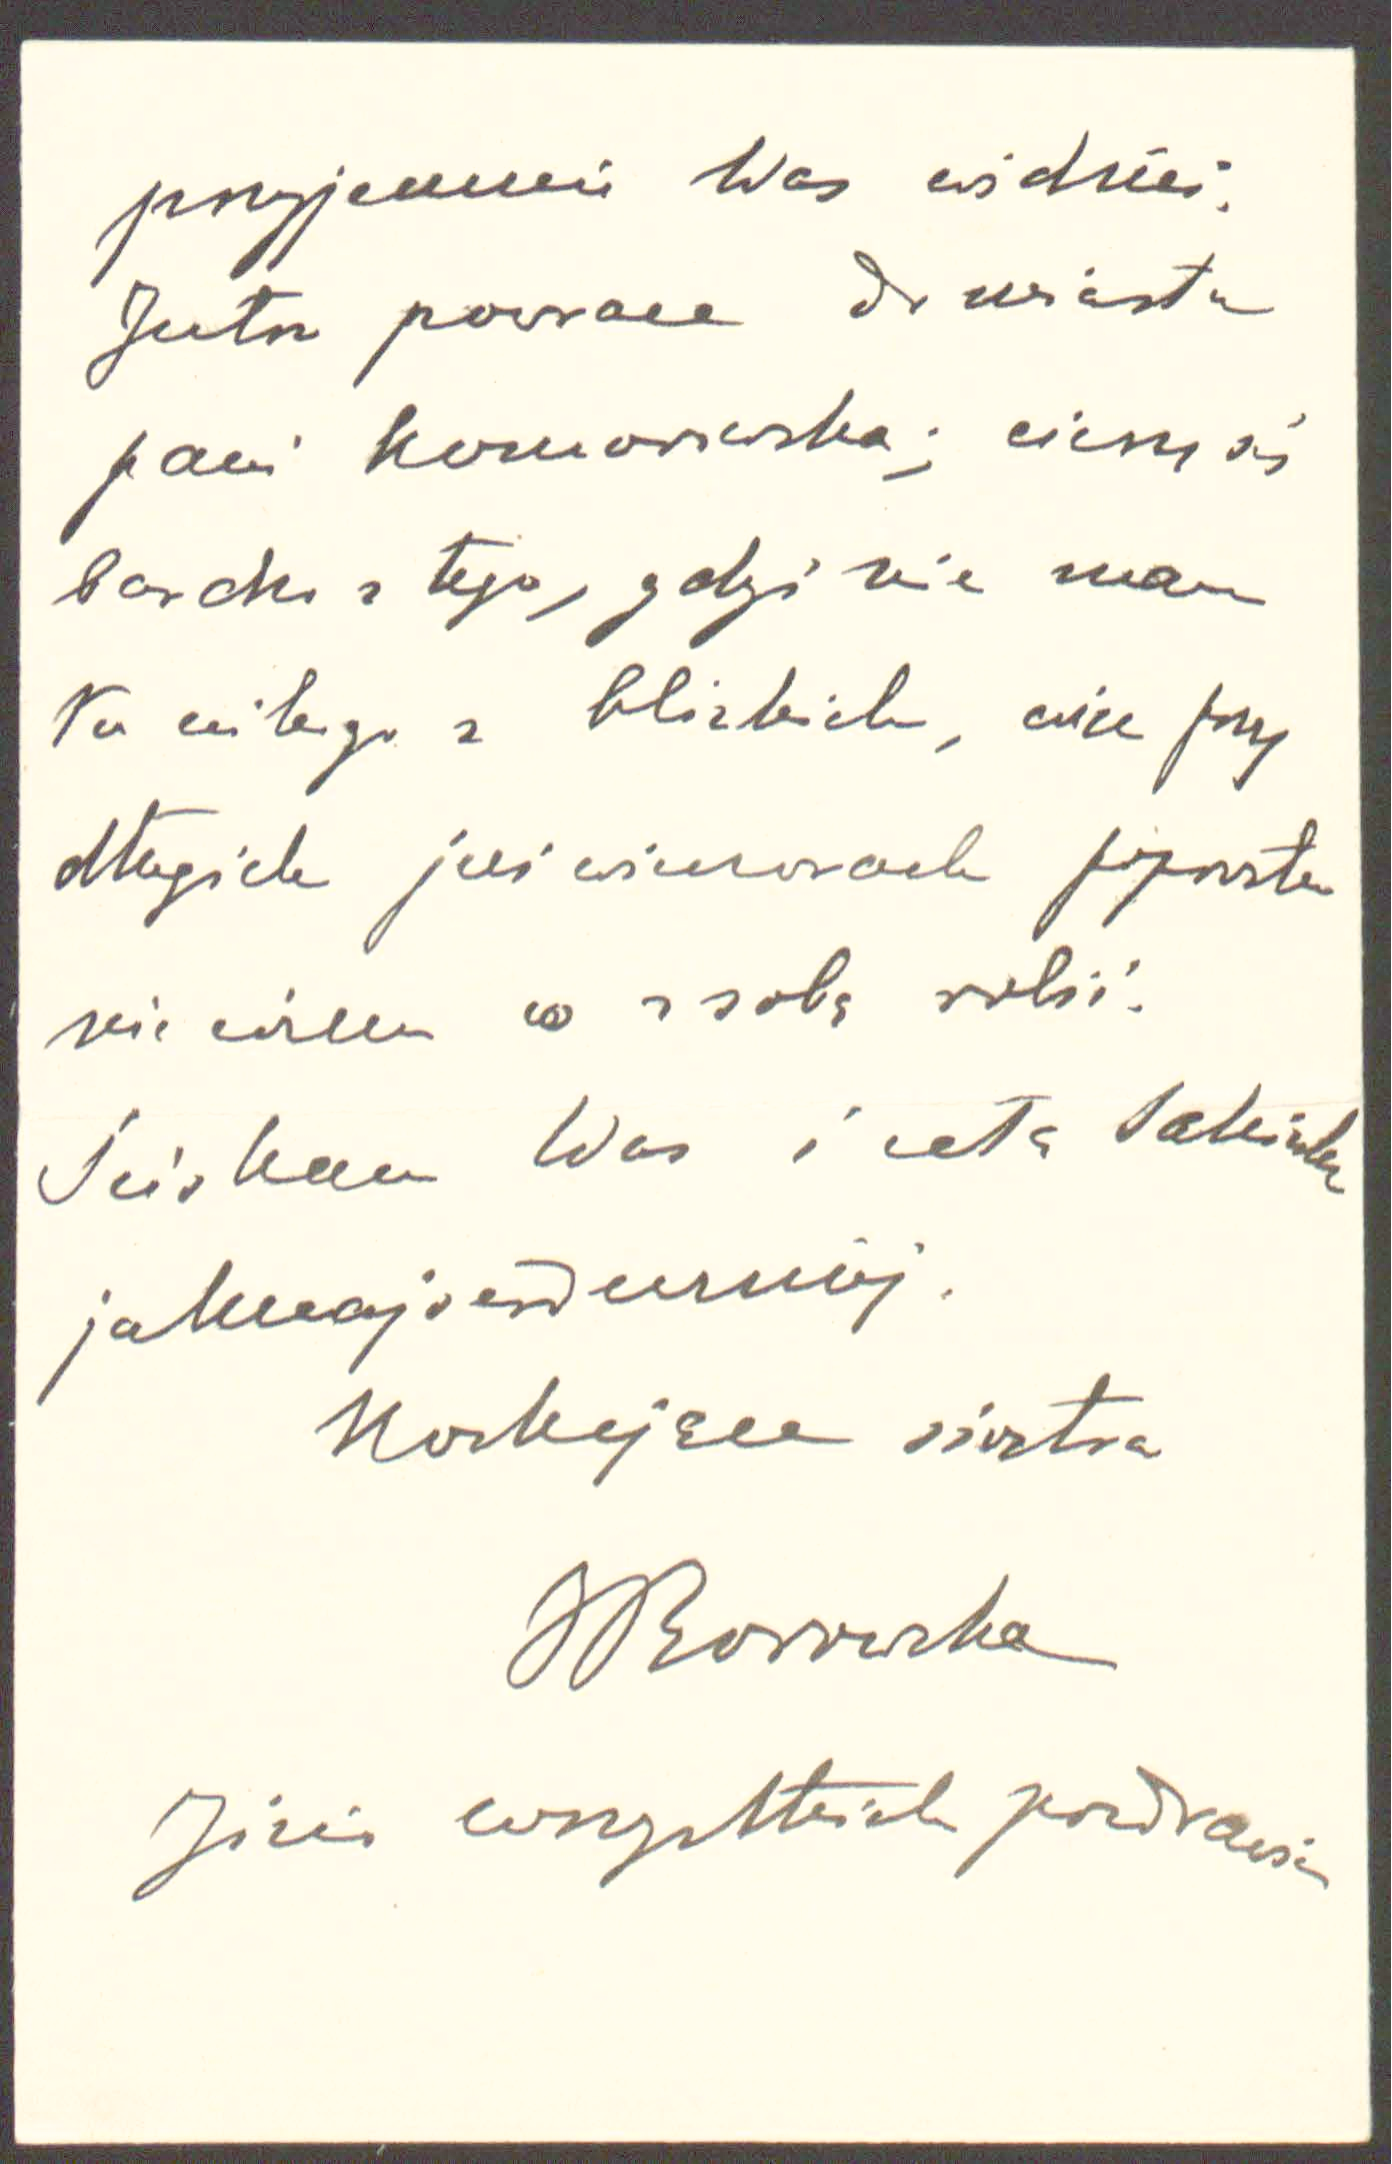 przyjemnie Was widzieć.
Jutro powraca do miasta
pani Komorowska; cieszę się
bardzo z tego, gdyż nie mam
tu nikogo z blizkich, więc przy
długich już wieczorach poprostu
nie wiem co z sobą robić.
Ściskam Was i całą
jaknajserdeczniej.
Kochająca siostra
JBorowska
Józio wszystkich pozdrawia